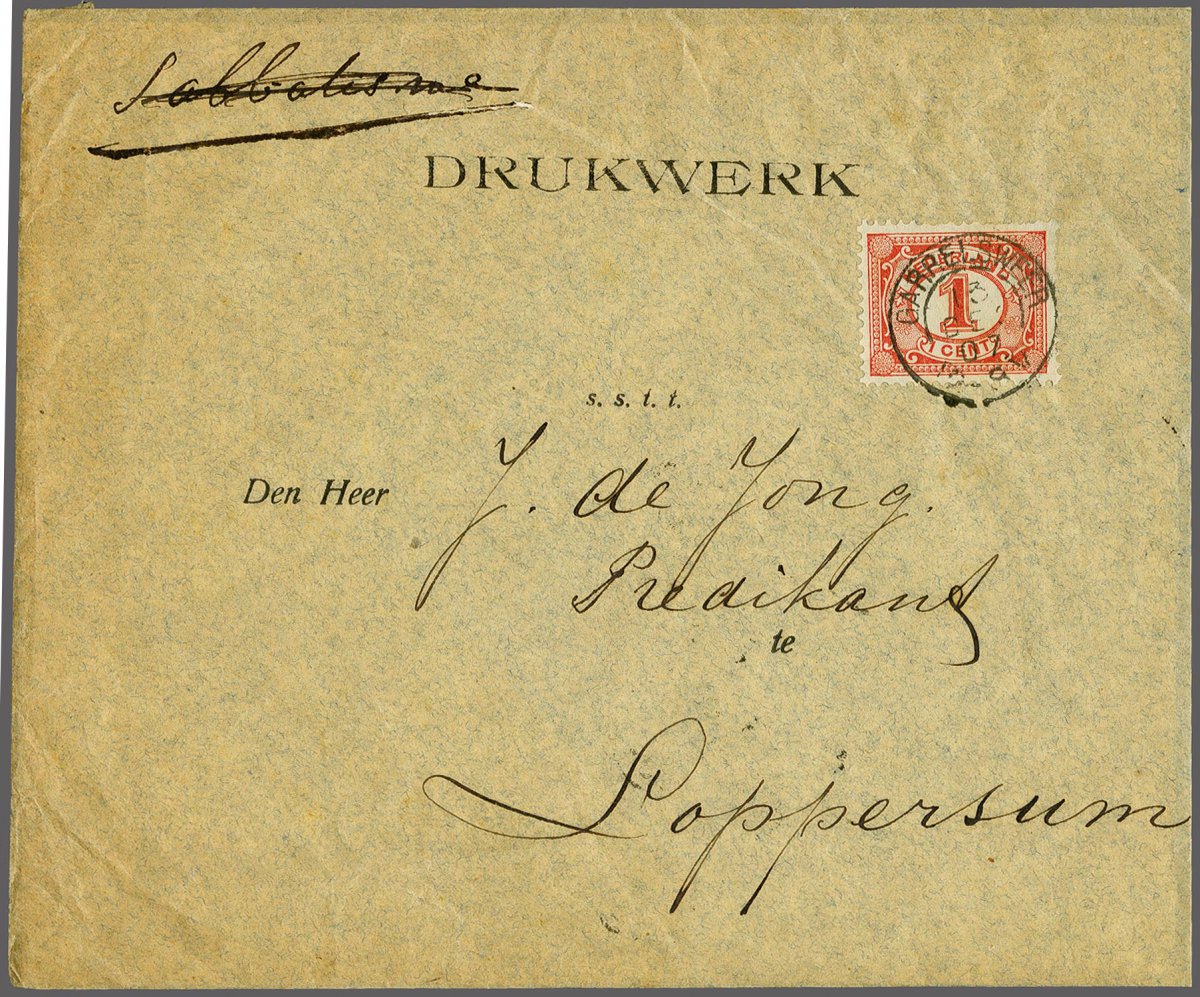 Sabbatisme
DRUKWERK
GARRELSWEER
1
1 CENT
07
s. s. t. t.
Den Heer J. de Jong.
Predikant
te
Loppersum